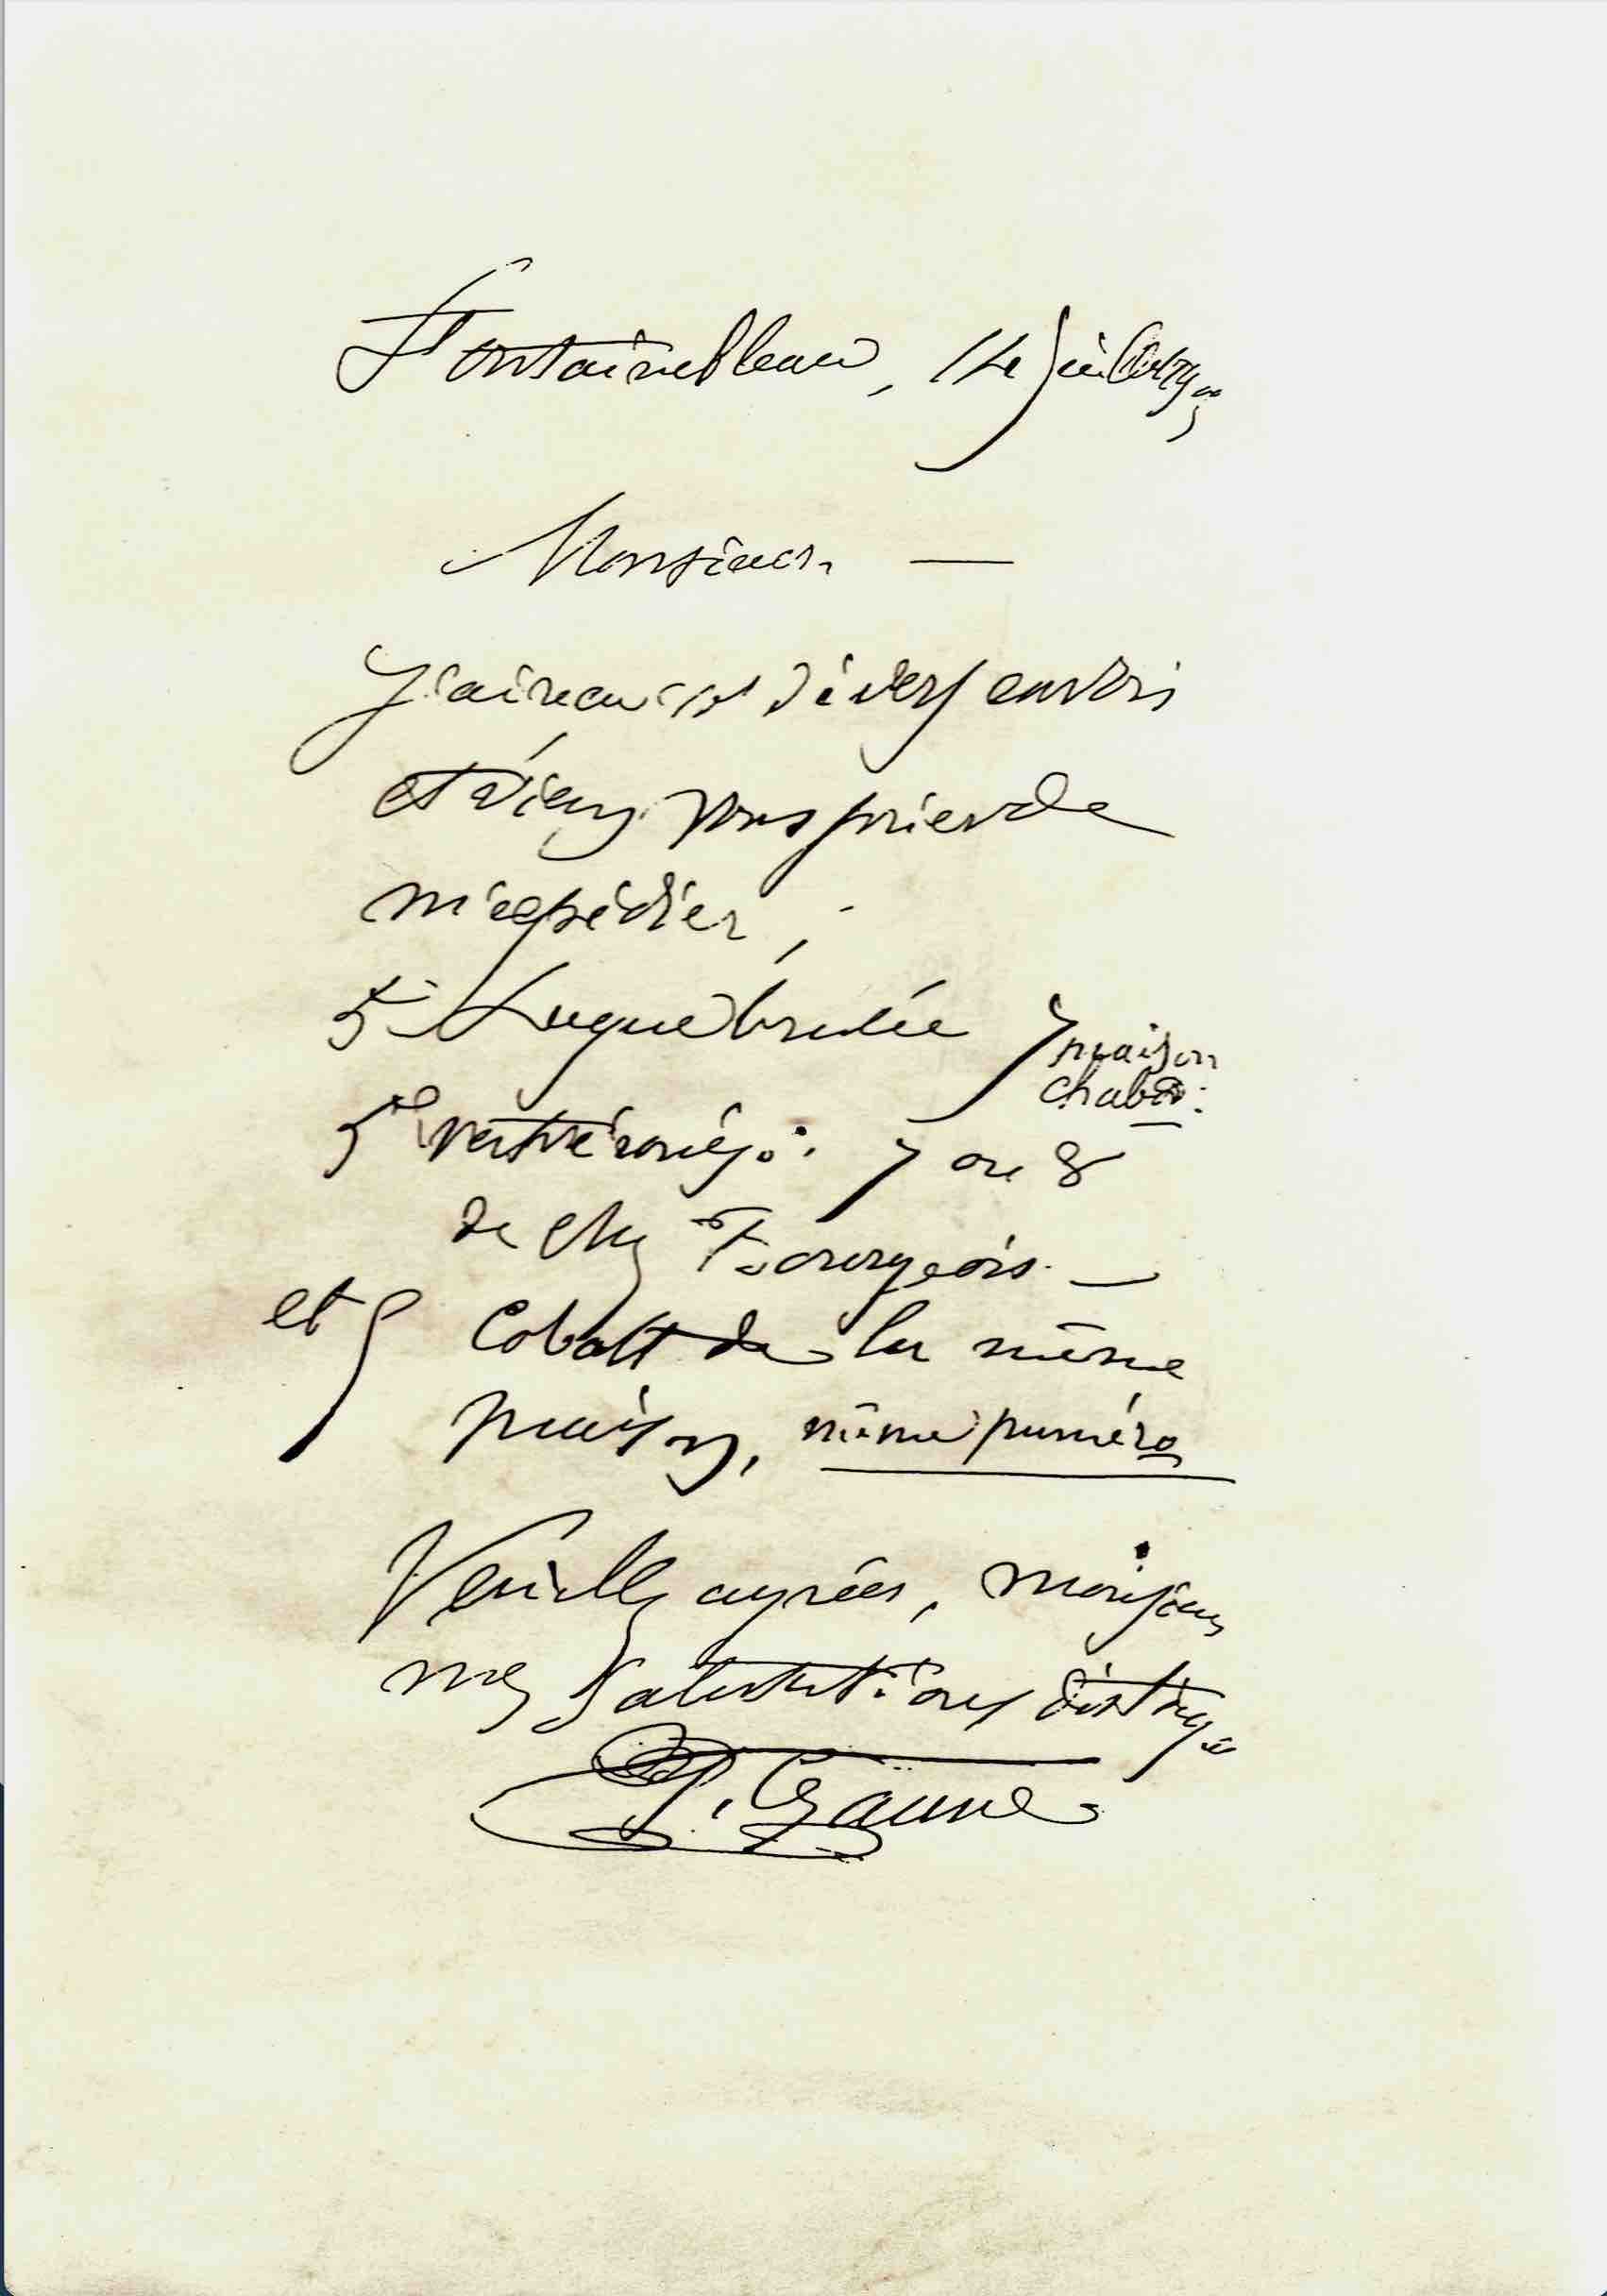 Fontainebleau, 14 juillet 1905
Monsieur. —
J'ai reçu vos divers envois
et viens vous prier de
m'expédier,
5 Laque brulée 7 maison
chabo.
5 vert véronèse: 7 ou 8
de chez Bourgeois. —
et 5 Cobalt de la même
maison, même numéro
Veuillez agréer, monsieur
mes salutations distinguées